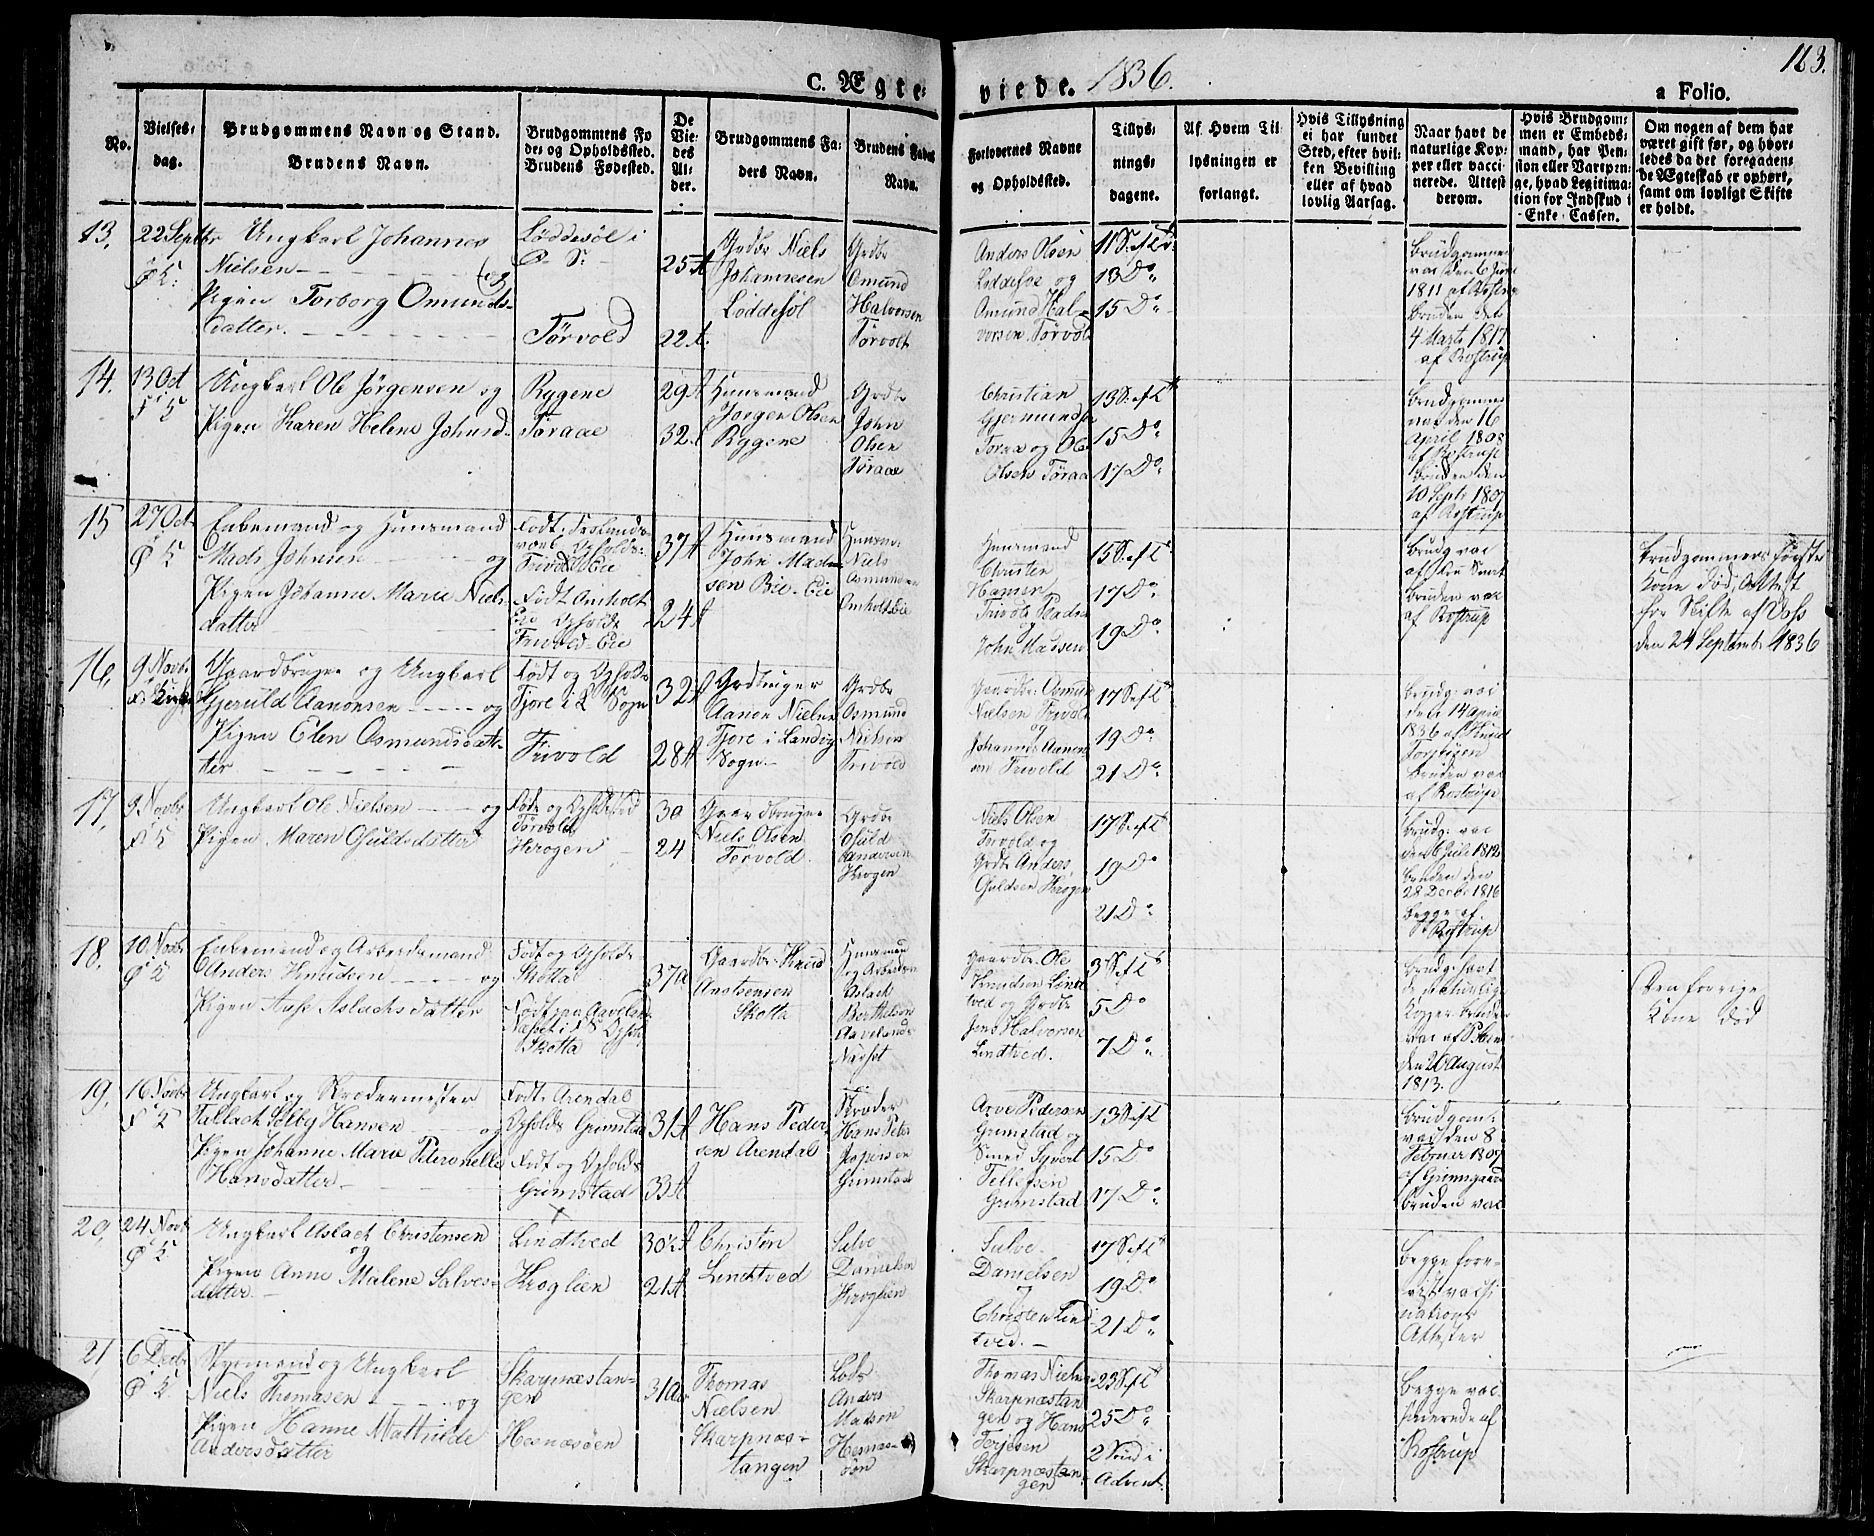 C. Ægte-
viede. 1836.
a Folio.
163.
No.
Vielses-
dag.
Brudgommens Navn og Stand.
Brudens Navn.
Brudgommens Fø
de- og Opholdssted.
Brudens Fødested.
De
Vie-
des
Al-
der.
Brudgommens Fa-
ders Navn.
Brudens Faders
Navn.
Forlovernes Navne
og Opholdssted.
Tillys-
nings-
dagene.
Af Hvem Til-
lysningen er
forlangt.
Hvis Tillysning
ei har fundet
Sted, efter hvil-
ken Bevilling
eller af hvad
lovlig Aarsag.
Naar havt de
naturlige Kop-
per eller vacci-
nerede. Attest
derom.
Hvis Brudgom-
men er Embeds-
mand, har Pen-
sion eller Varpen-
ge, hvad Legitima-
tion for Indskud i
Enke-Cassen.
Om nogen af dem har
været gift før, og hvor-
ledes da det foregaaen-
de Ægteskab er ophørt,
samt om lovligt Skifte
er holdt.
13.
22 Septbr
Ø K:
Ungkarl Johannes
Nielsen og
Pigen Torborg Omunds-
datter.
Løddesøl i
Ø. S.
Tørvold
25 A
22 A.
Grdbr Niels
Johannesen
Løddesøl
Grdbr
Omund
Halvorsen
Tørvolt
Anders Olsen
Løddesøe og
Omund Hal-
vorsen Tørvold
11 S. eft Tr.
13 Do
15 Do
Brudgommen
vac den 6 Juni
1811 af Rostrup
Bruden det
4 Marts 1817
af Rostrup
14.
13 Oct
F K
Ungkarl Ole Jörgensen og
Pigen Karen Helene Johnsd.
Rygene
Toraae
29 A
32 A
Huusmand
Jorgen Olsen
Rygene
Grdbr
John
Olsen
Toraae
Christian
Gjermunds
Toraae og Ole
Olsen Töraa
13 S. eft Tr
15 Do
17 Do
Brudgommen
vac den 16
April 1808
af Rostrup
Bruden den
10 Septr 1807
af Rostrup
15
27 Oct.
Ø K
Enkemand og Huusmand
Mads Johnsen og
Pigen Johanne Marie Niels-
datter
Frivold Eie
Født Omholt
Eie Opholds
Frivold Eie
37 A
24 A
Huusmand
John Mad-
sen Bie-Eie
Huusm.
Niels
Osmundsen
Omholt Eie
Huusmand
Christen
Hansen
og
John Madsen
15 S. eft Tr
17 Do
19 Do
Brudg vac
Bruden vac
af Rostrup
Brudgommens første
Kone død, Attest
for Skifte af Voss
den 24 Septemb. 1836
16.
9 Novbr
F. Kirke
Gaardbruger og Ungkarl
Gjeruld Aanonsen og
Pigen Elen Osmundsdat-
ter
Født og Opholds
Fjore i L. Sogn
Frivold
32 A
28 A
Grdbruger
Aanon Nielsen
Fjore i Landvig
Sogn
Grdbr
Osmund
Nielsen
Frivold
Gaardbr: Osmund
Nielsen Frivold
og
Johannes Aanon-
sen Frivold
17 S. eft Tr
19 Do
21 Do
Brudg: vac
den 14 April
1836 af Knud
Torstigsen
Bruden vac
af Rostrup
17.
9 Novbr
F K
Ungkarl Ole Nielsen og
Pigen Maren Gulds datter
Føde og Opholdssted
Tørvold
Krogen
30
24
Gaardbruger
Niels Olsen
Tørvold.
Grdbr
Guld
Andersen
Krogen
Niels Olsen
Tørvold og
Grdbr Anders
Guldsen Krogen
17 S. eft Tr
19 Do
21 Do
Brudg: vac
den 6 Juli 1812
Bruden den
28 Decbr 1816
Begge af
Rostrup
18.
10 Novbr
Ø K
Enkemand og Arbeidsmand
Anders Knudsen og
Pigen Aase Aslachs datter
Født og Opholds
Skotta
Skotta
37 A
Gaardbr. Knud
Skotta
Huusmand
og Arbeidsm
Aslach
Berthelsen
Gaardbr. Ole
Knudsen Lind-
tved og Grdbr
Jens Halvorsen
Lindtved.
3 S. eft Tr
5 Do
7 Do
Brudg: havt
de naturlige
Kopper Bruden
den 26 August
1813.
Den forrige
Kone død
19.
16 Novbr
F K
Ungkarl og Skrædermester
Tallach Selby Hansen og
Pigen Johanne Marie Peteronelle
Hansdatter
Født Arendal
Opholds Grimstad
Født og Opholds
Grimstad
31 A
33 A
Hans Peder-
sen Arendal
Skræder
Hans Peter
Jespersen
Grimstad
Arve Pedersen
Grimstad og
Smed Syvert
Tellefsen
Grimstad
13 S. eft T
15 Do
17 Do
Brudgom:
vac den 8
Februar 1807
af Grimsgaard
Bruden vac
20,
24 Novbr
Ø K
Ungkarl Aslach Christensen
og
Pigen Anne Malene Salves-
datter.
Lindtved
Kroglien
30½ A
21 A
Christen
Lindtved
Salve
Danielsen
Kroglien
Salve
Danielsen
og
Christen Lind
tved.
17 S. eft Tr
19 Do
21 Do
Begge fore-
vist vacsi
nations
Attester
21
6 Decbr
Ø K.
Styrmand og Ungkarl
Niels Thomasen og
Pigen Hanne Mathilde
Andersdatter
Skarpnæstan-
gen
Hesnæsöen
31 Aar
Thomas
Nielsen
Skarpnæs-
tangen
Lods
Anders
Madsen
Hesnæs-
öen
Thomas Nielsen
Skarpnæstan-
gen og Hans
Terjesen
Skarpnæstan-
gen
23 S. eft T
25 Do
2 Sönd i
Advent
Begge vac
sinerede af
Rostrup